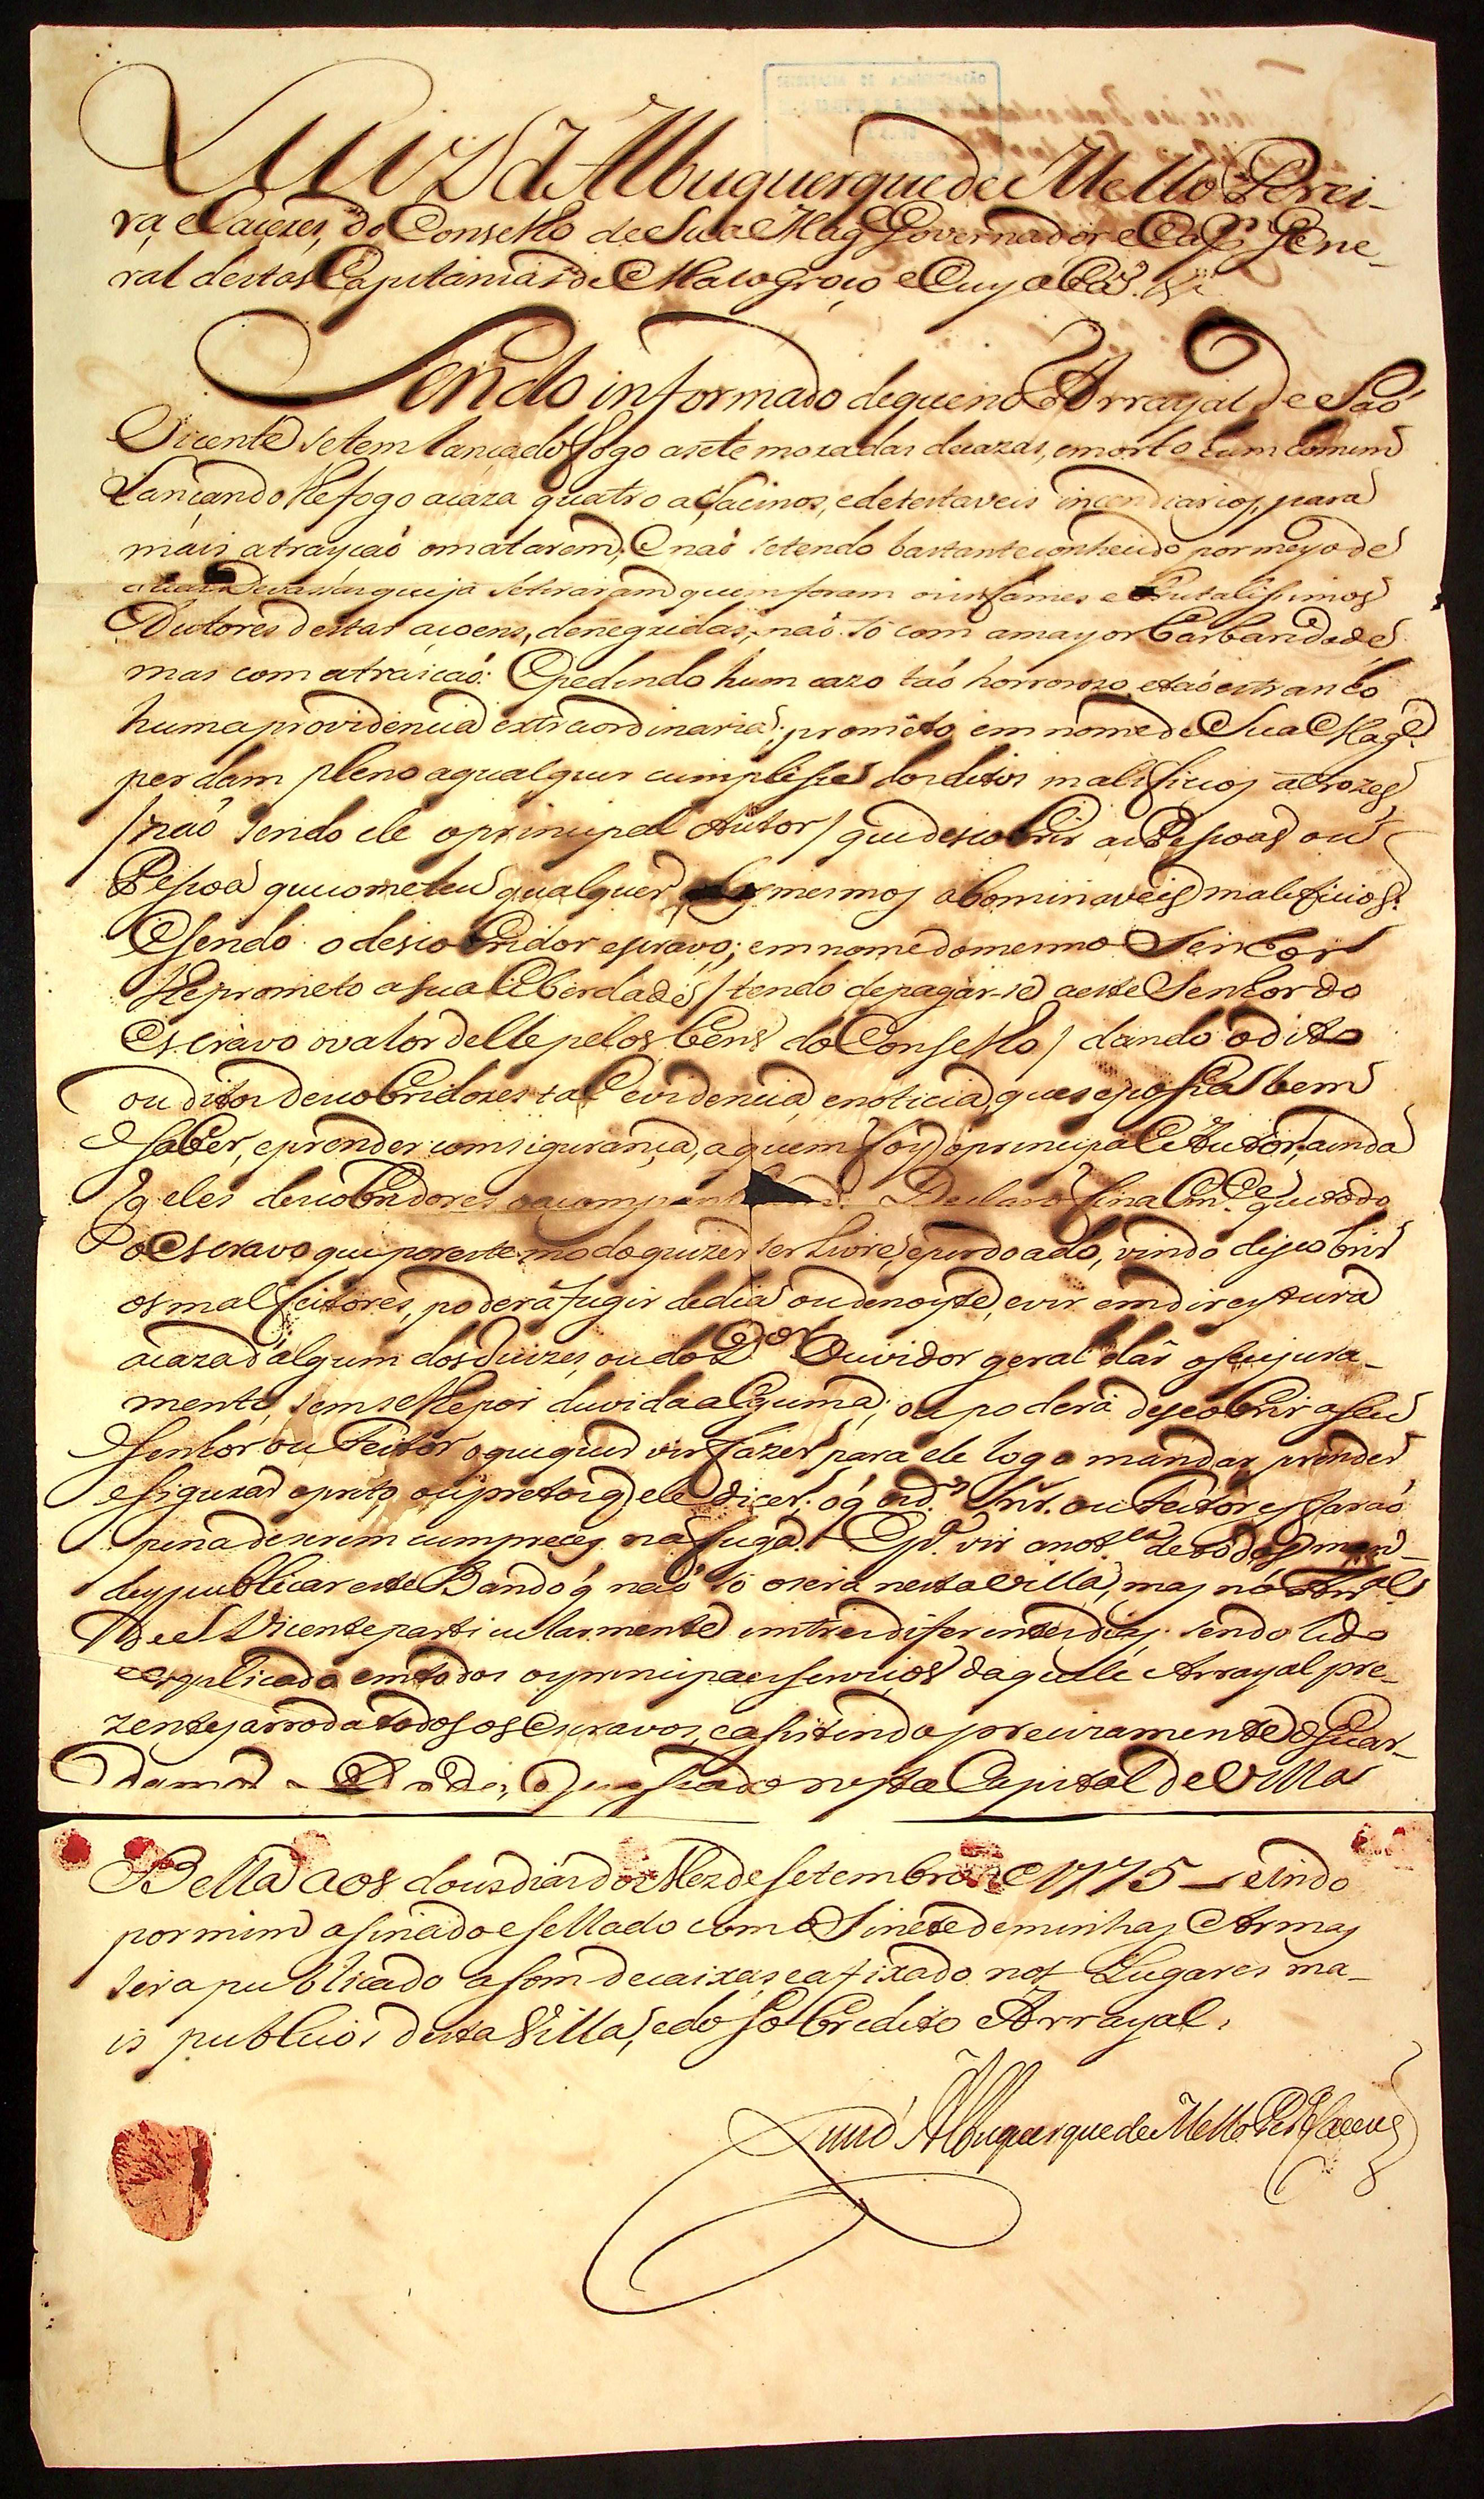 Luiz d'Albuquerque de Mello Perei-
ra, e Caceres, do Conselho de Sua Mag.e Governador e Cap.m Gene-
ral destas Capitanias de Mato groço e Cuyabá. &.
Sendo informado de que no Arrayal de Saó
Vicente se tem lançado fogo a sete moradas de cazas, e morto hum homem
Lançando lhe fogo a caza quatro asacinos, e detestaveis incendiarios, para
mais atrayçaó o matarem, E naó se tendo bastante conhecido por meyo de
Devassas que ja se tiraram quem foram os infames e brutalissimos
Autores destas açoens, denegridas, naó só com a mayor barbaridade
mas com atraicaó: E pedindo hum cazo taó horrorozo, e taó estranho
huma providencia extraordinaria; prometo em nome de Sua Mag.e
perdam pleno a qualquer cumplisse dos ditos maleficios atrozes
/ naó sendo ele o principal Autor / que descobrir as Pessoas ou
Pessoa que cometeu qualquer mesmos abominaveis maleficios.
E sendo o descobridor escravo; em nome do mesmo Senhor
lhe prometo a sua liberdade / tendo de pagar-se a este Senhor do
Escravo o valor delle pelos bens do Conselho / dando o dito
ou ditos descobridores tal evidencia, e noticia, que se possa bem
saber, e prender com sigurança, a quem foy o principal Autor, ainda
q eles descobridores o Declaro final m.e que todo
o Escravo que por este modo quizer ser Livre, e perdoado, vindo descobrir
os mal feitores, poderá fugir de dia ou de noyte, e vir em direytura
a caza d'algum dos Juizes, ou do D.or Ouvidor geral dár o seu jura-
mento, sem se lhe por duvida alguma; ou poderá descobrir a seu
Senhor ou Feitor o que quer vir fazer, para ele logo mandar prender
e sigurar o preto, ou pretos q ele dicer. o q os d.os Snr. ou Feitores faraó
pena de serem cumpreces na fuga. E p.a vir a not.ca de todos man-
dey publicar este Bando q naó só o será nesta Villa, mas no Arr.al
de S. Vicente particularmente em tres diferentes dias. sendo lido
e explicado em todos os principaes serviços daquele Arrayal pre-
zentes arroda todos os Escravos, e asistindo precizamente o Guar-
da mor Dado, e passado nesta Capital de Villa
Bella aos dous dias do Mez de Setembro de 1775 sendo
por mim asinado e sellado com o Sinete de minhas Armas
será publicado a som de caixas, e afixado nos Lugares ma-
is publicos desta Villa, e do sobredito Arrayal.
Luiz d'Albuquerque de Mello Per.a e Caceres